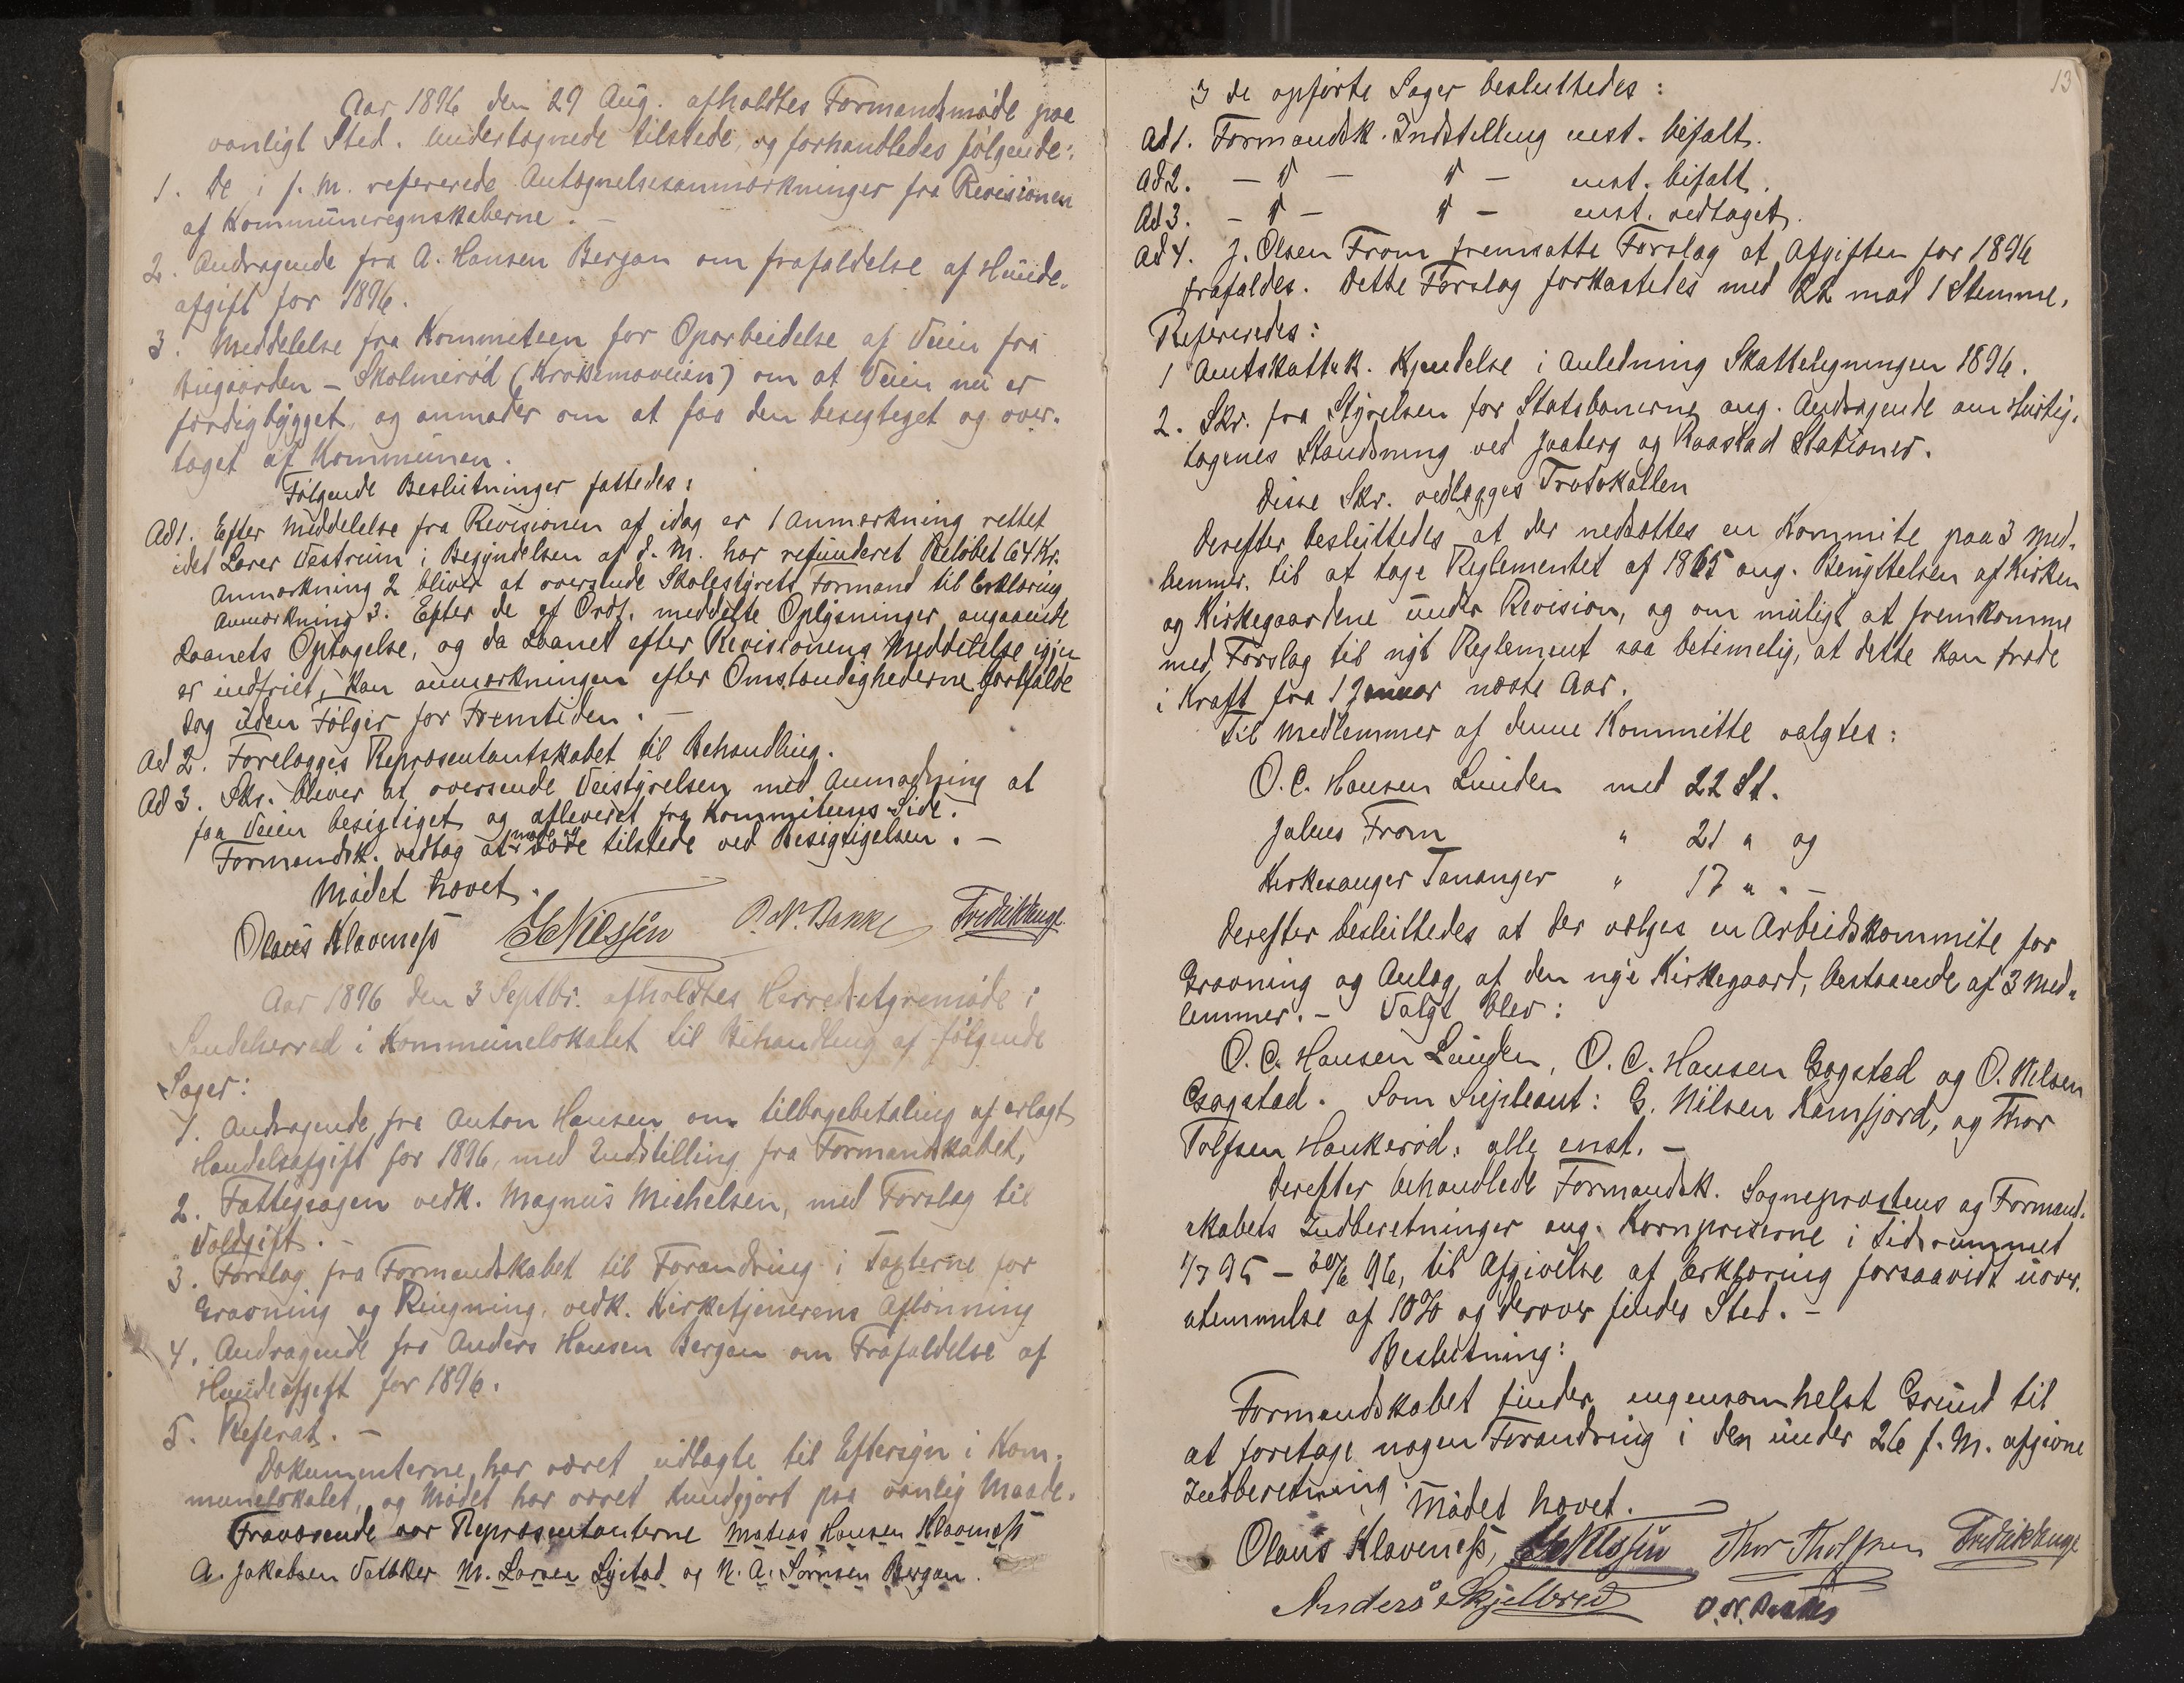 Aar 1896 den 29 Aug. afholdtes Formandsmøde paa
vanligt Sted. Undertegnede tilstede, og forhandledes følgende:
1. De i f. M. refererede Antegnelsesanmærkninger fra Revisionen
af Kommuneregnskaberne. –
2. Andragende fra A. Hansen Bergan om frafaldelse af Hunde-
afgift for 1896.
3. Meddelelse fra Kommiteen for Oparbeidelse af Veien fra
Bugaarden – Skolmerød (Krokemoveien) om at Veien nu er
færdigbygget, og anmoder om at faa den besegtiget og over-
taget af Kommunen.
Følgende Beslutninger fattedes:
Ad 1. Efter Meddelelse fra Revisionen af idag er 1 Anmærkning rettet
idet Lærer Vestrum i Begyndelsen af d. M. har refunderet Beløbet 64 Kr.
Anmærkning 2 bliver at oversende Skolestyrets Formand til Erklæring
Anmærkning 3. Efter de af Ordf. meddelte Oplysninger angaaende
Laanets Optagelse, og da Laanet efter Revisionens Meddelelse igjen
er indfriet, kan anmærkningen efter Omstændighederne bortfalde
dog uden Følger for Fremtiden. –
Ad 2. Forelægges Repræsentantskabet til Behandling.
Ad 3. Skr. bliver at oversende Veistyrelsen med Anmodning at
faa Veien besigtiget og afleveret fra Kommiteens Side.
Formandsk. vedtog at møde tilstede ved Besigtigelsen. –
Mødet hævet.
Olaus Klavness J. Nilssen O. N. Bakke Fredrik Hauge
Aar 1896 den 3 Septbr. afholdtes Herredsstyremøde i
Sandeherred i Kommunelokalet til Behandling af følgende
Sager:
1. Andragende fra Anton Hansen om tilbagebetaling af erlagt
Handelsafgift for 1896, med Indstilling fra Formandskabet.
2. Fattigsagen vedk. Magnus Michelsen, med Forslag til
Voldgift. –
3. Forslag fra Formandskabet til Forandring i Taxterne for
Gravning og Ringning, vedk. Kirketjenerens Aflønning
4. Andragende fra Anders Hansen Bergan om Frafaldelse af
Hundeafgift for 1896.
5. Referat. –
Dokumenterne har været udlagte til Eftersyn i Kom-
munelokalet, og Mødet har været kundgjort paa vanlig Maade.
Fraværende var Repræsentanterne Mathias Hansen Klavness
A. Jakobsen Vataker M. Larsen Lystad og N. A. Sørnsen Bergan.
13
I de opførte Sager besluttedes:
Ad 1. Formandsk. Indstilling enst. bifalt.
Ad 2. – " – " – enst. bifalt.
Ad 3. – " – " – enst. vedtaget.
Ad 4. J. Olsen From fremsatte Forslag at Afgiften for 1896
frafaldes. Dette Forslag forkastedes med 22 mod 1 Stemme.
Refereredes:
1 Amtskattek. Kjendelse i Anledning Skattelegningen 1896.
2. Skr. fra Styrelsen for Statsbanerne ang. Andragende om Hurtig-
togenes Standsning ved Jaaberg og Raastad Stationer.
Disse Skr. vedlægges Protokollen
Derefter besluttedes at der nedsættes en Kommite paa 3 Med-
lemmer. til at tage Reglementet af 1865 ang. Benyttelsen af Kirken
og Kirkegaardene under Revision, og om muligt at fremkomme
med Forslag til nyt Reglement saa betimelig, at dette kan træde
i Kraft fra 1 Januar næste Aar.
Til Medlemmer af denne Kommitte valgtes:
O. C. Hansen Lunden med 22 St.
Julius From " 21 " og
Kirkesanger Tananger " 17 " . –
Derefter besluttedes at der vælges en Arbeidskommite for
Gravning og Anlæg af den nye Kirkegaard, bestaaende af 3 Med-
lemmer. – Valgt blev:
O. C. Hansen Lunden, O. C. Hansen Gogstad og O. Nilsen
Gogstad. Som Supleant: G. Nilsen Kamfjord, og Thor
Tolfsen Haukerød. alle enst. –
Derefter behandlede Formandsk. Sogneprestens og Formand-
skabets Indberetninger ang. Kornpriserne i Tidsrummet
1/7 95 – 30/6 96, til Afgivelse af Erklæring forsaavidt uover-
stemmelse af 10% og derover findes Sted. –
Beslutning:
Formandskabet finder ingensomhelst Grund til
at foretage nogen Forandring i den under 26 f. M. afgivne
Indberetning.
Mødet hævet.
Olaus Klavness, J. Nilssen Thor Tholfsen Fredrik Hauge
Anders Skjelbred O. N. Bakke